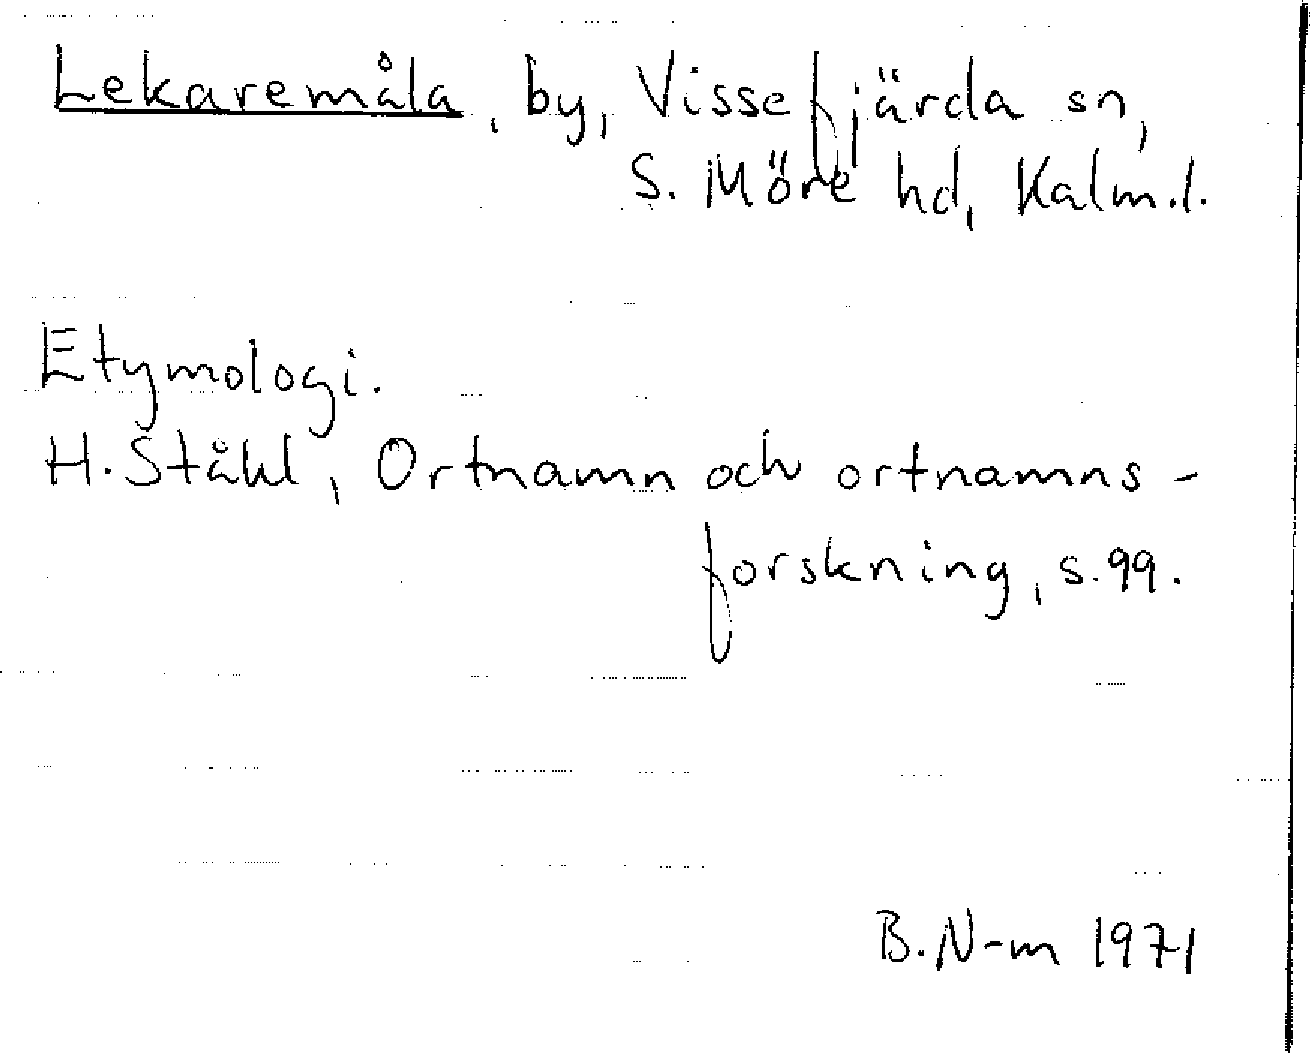 Lekaremåla, by, Vissefjärda sn,
S. Möre hd, Kalm.l.
Etymologi.
H. Ståhl, Ortnamn och ortnamns-
forskning, s.99.
B.N-m 1971